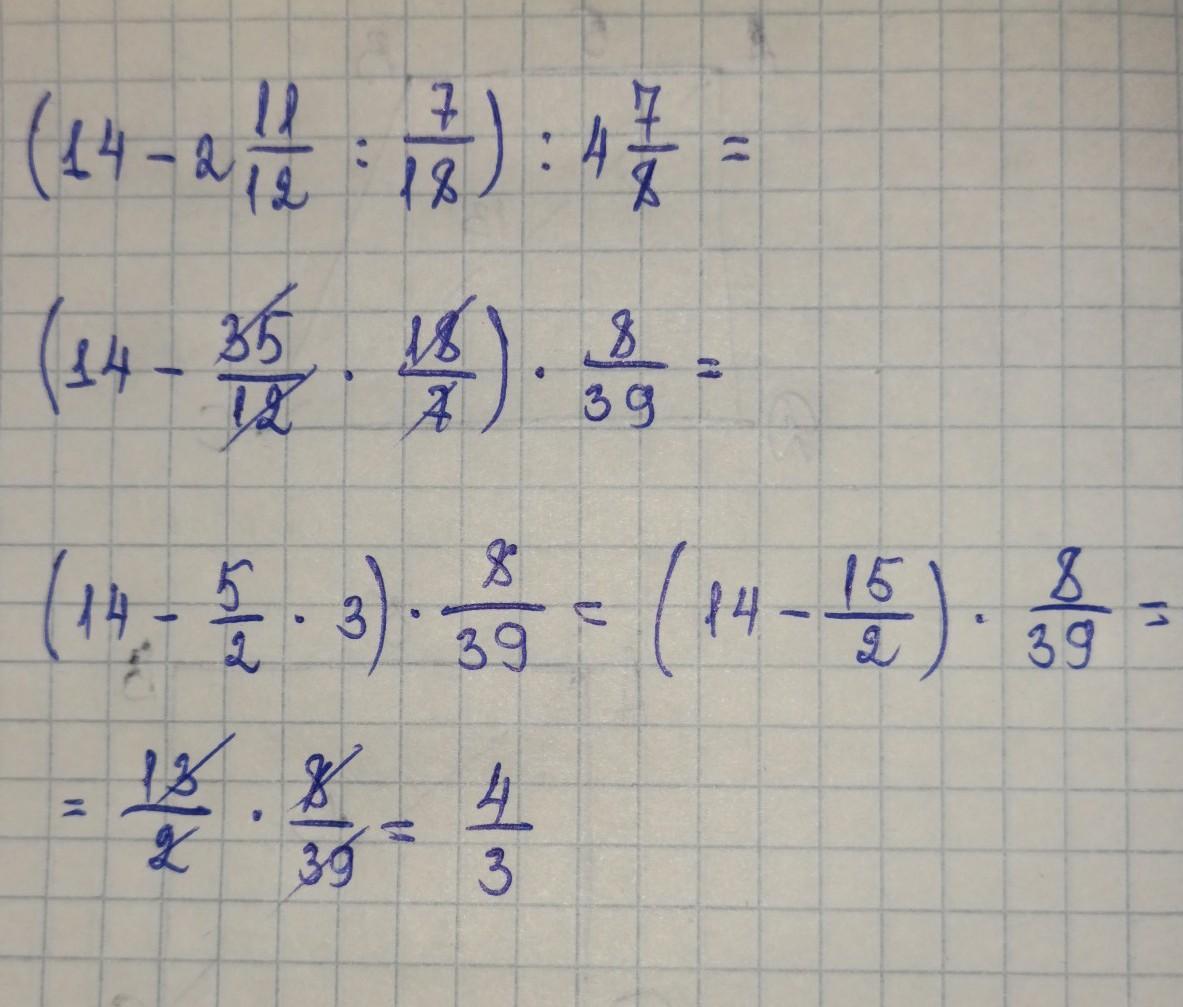 (14 - 2 11/12 : 7/18) : 4 7/8 =
(14 - 35/12 · 18/7) · 8/39 =
(14 - 5/2 · 3) · 8/39 = (14 - 15/2) · 8/39 =
= 13/2 · 8/39 = 4/3